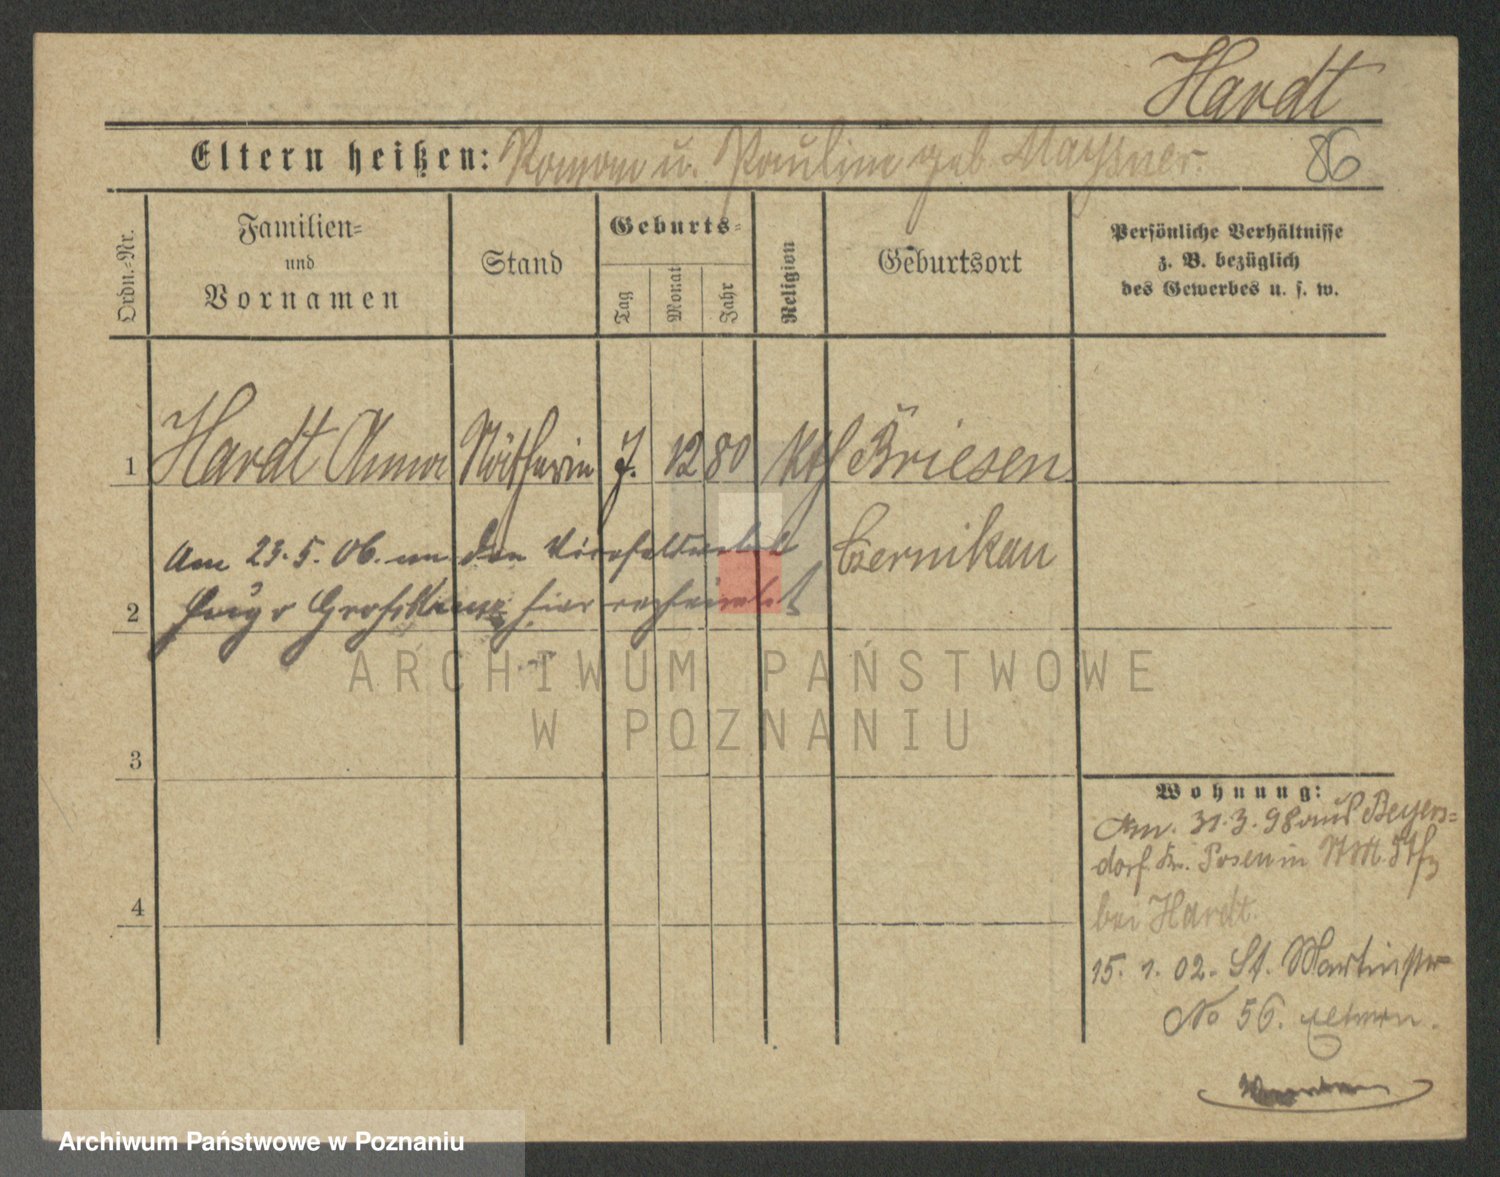 Hardt
Eltern heißen: Roman u. Paulina geb. Maysner. 86
Ordn.-Nr.
Familien-
und
Vornamen
Stand
Geburts-
Tag
Monat
Jahr
Religion
Geburtsort
Persönliche Verhältnisse
z. B. bezüglich
des Gewerbes u. s. w.
1 Hardt Anna Nätherin 7. 12 80 kth Briesen
Czernikau
Am 23.5.06. an den Vizefeldwebel
2 Hugo hier verheiratet
3
4
Wohnung:
Am. 31.3.98 aus Beyers-
dorf. Kr. Posen in
bei Hardt
15. 1. 02. St. Martinstr
No 56. Eltern.
ARCHIWUM PAŃSTWOWE
W POZNANIU
Archiwum Państwowe w Poznaniu